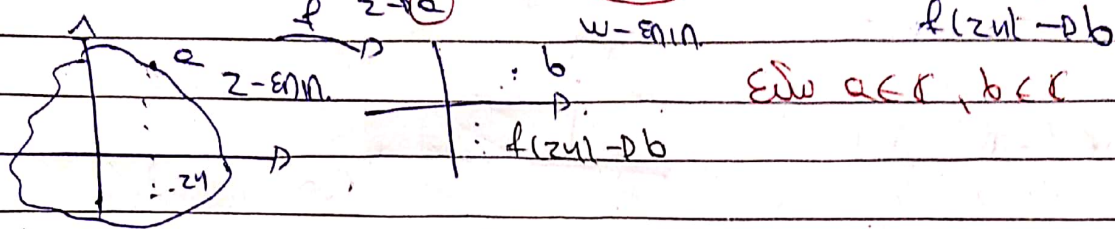 f z→a w-επιπ. f(zν) → b
a z-επιπ. b Εδώ a∈ℂ, b∈ℂ
zν f(zν) → b